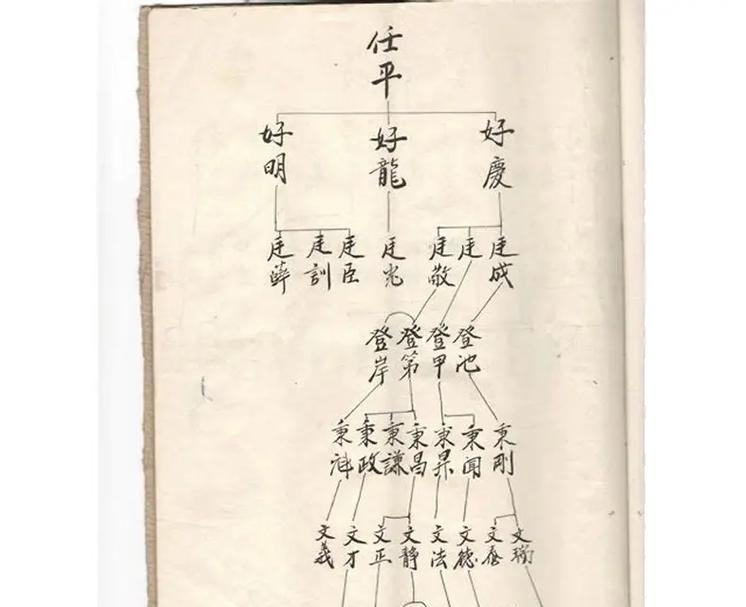 任平
好慶 好龍 好明
廷成 廷 廷敬 廷光 廷臣 廷訓
登池 登甲 登第 登岸
秉剛 秉聞 秉昇 秉昌 秉謙 秉政
文瑞 文法 文靜 文正 文才 文義